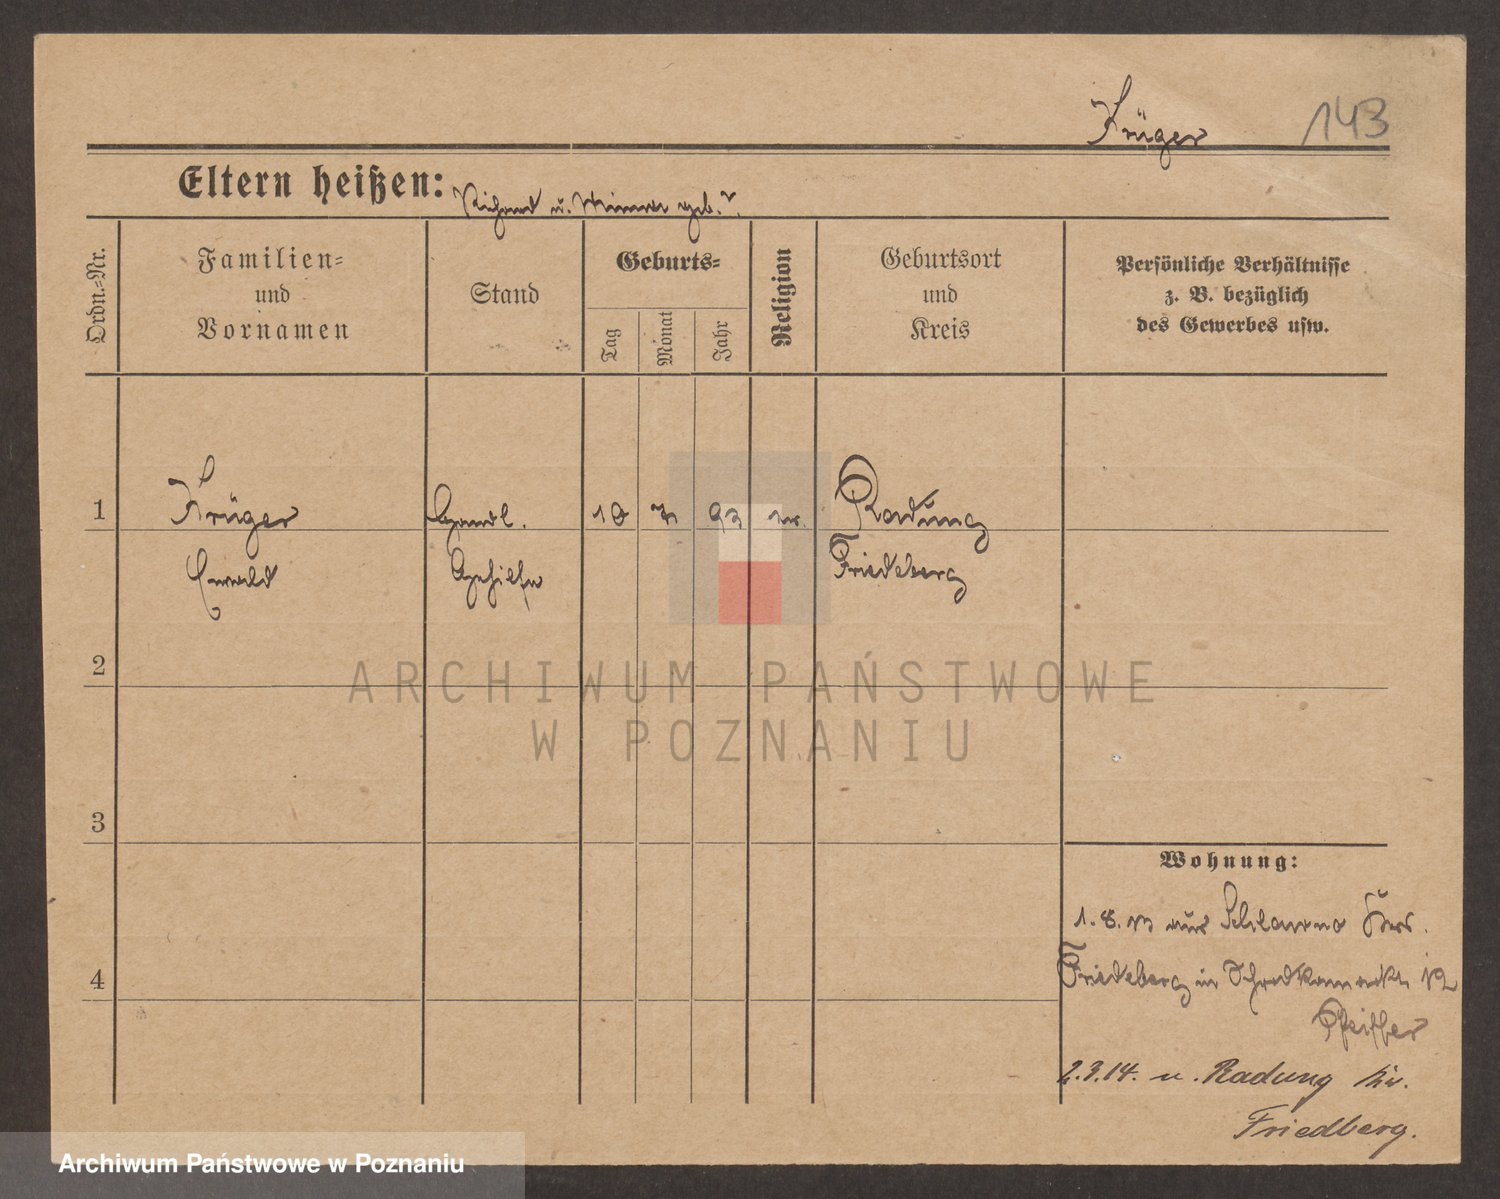 Krüger 143
Eltern heißen: Richard u. Minna geb. ?.
Ordn.-Nr.
Familien-
und
Vornamen
Stand
Geburts-
Tag
Monat
Jahr
Religion
Geburtsort
und
Kreis
Persönliche Verhältnisse
z. B. bezüglich
des Gewerbes usw.
1 Krüger Handl. 10 7 93 ev. Radung
Ewald Gehilfe Friedeberg
2
3
4
Wohnung:
1. 8. 13 aus Krs.
Friedeberg in 12
Pfeiffer
2.3.14. n. Radung Kr.
Friedberg.
ARCHIWUM PAŃSTWOWE
W POZNANIU
Archiwum Państwowe w Poznaniu